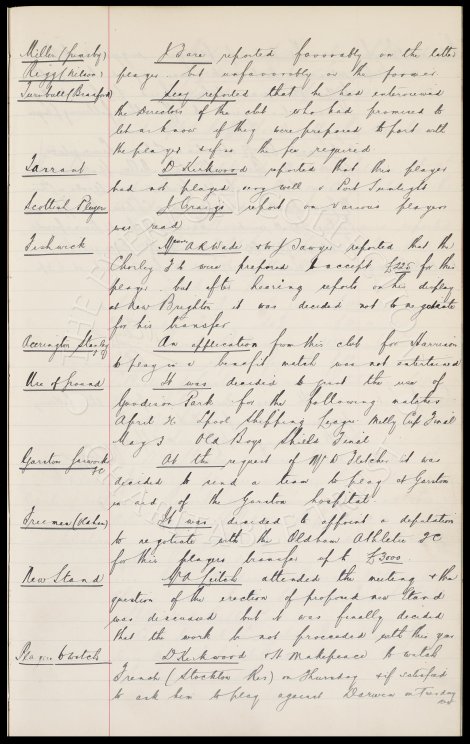 Miller (Grimsby) J Dare reported favorably on the latter
Rigg (Nelson) player but unfavorably on the former.
Turnbull (Bradford) Leay reported that he had interviewed
the Directors of the club who had promised to
let us know if they were prepared to part with
the player & if so the fee required
Tarrant D Kirkwood reported that this player
had not played very well v Port Sunlight
Scottish Players J Craigs report on various players
was read
Fishwick Messrs A R Wade & W J Sawyer reported that the
Chorley FC were prepared to accept £225 for this
player but after hearing reports on his display
at New Brighton it was decided not to negotiate
for his transfer
Accrington Stanley FC An application from this club for Harrison
to play in a benefit match was not entertained
Use of Ground It was decided to grant the use of
Goodison Park for the following matches
April 26 Lpool Shipping League Melly Cup Final
May 3 Old Boys Shield Final
Garston Gasworks FC At the request of Mr W Fletcher it was
decided to send a team to play at Garston
in aid of the Garston hospital
Freeman (Oldham) It was decided to appoint a deputation
to negotiate with the Oldham Athletic FC
for this players transfer up to £3000.
New Stand Mr A Leitch attended the meeting & the
question of the erection of proposed new stand
was discussed but it was finally decided
that the work be not proceeded with this year
Players to watch D Kirkwood & H Makepeace to watch
French (Stockton Res) on Thursday & if satisfied
to ask him to play against Darwen on Tuesday
next